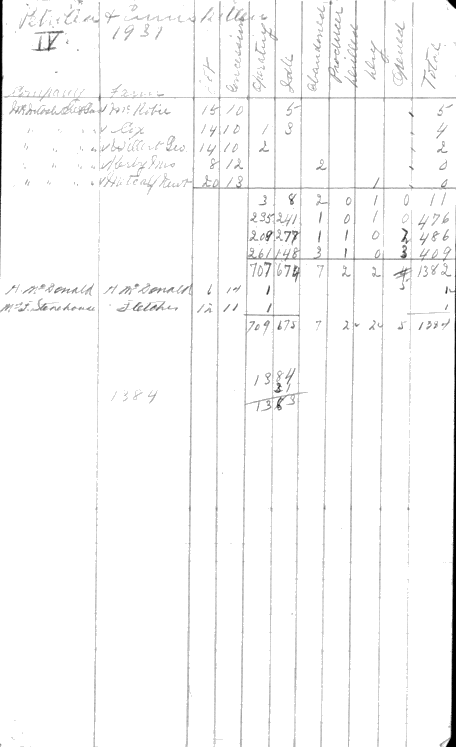 Petrolea & Enniskillen
IV. 1931
Company Farm Lot Concession Operating Idle Abandoned Producer Drilled Dry Opened Total
Mc Robie 15 10 5 5
" " " Cox 14 10 1 3 4
" " " Willert Geo. 14 10 2 2
" " " 8 12 2 0
" " " 20 13 1 0
3 8 2 0 1 0 11
235 241 1 0 1 0 476
209 277 1 1 0 2 486
261 148 3 1 0 3 409
707 674 7 2 2 5 1382
A. McDonald A. McDonald 6 14 1 1
Stonehouse Fletcher 12 11 1 1
709 675 7 2 2 5 1384
1384
31
1384 1353